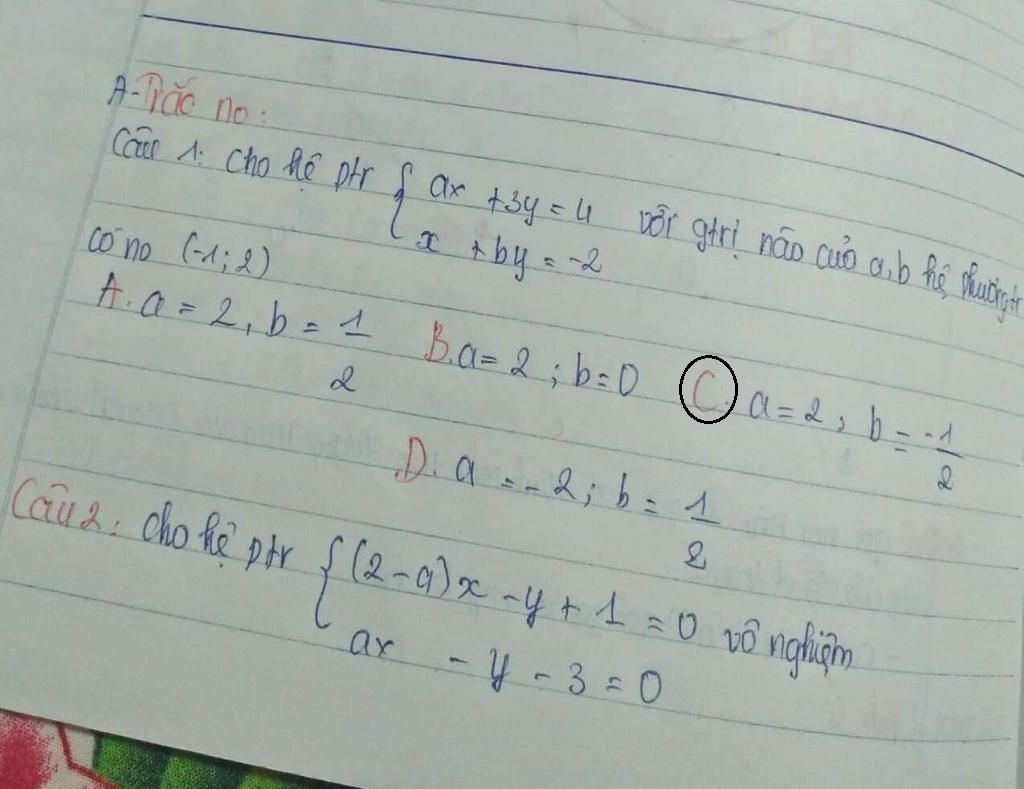 A-Trắc no:
Câu 1: Cho hệ ptr { ax + 3y = 4 với gtrị nào của a,b hệ phươngtr
x + by = -2
có no (-1; 2)
A. a = 2, b = 1/2 B. a = 2; b = 0 C. a = 2, b = -1/2
D. a = -2; b = 1/2
Câu 2: Cho hệ ptr { (2-a)x - y + 1 = 0 vô nghiệm
ax - y - 3 = 0